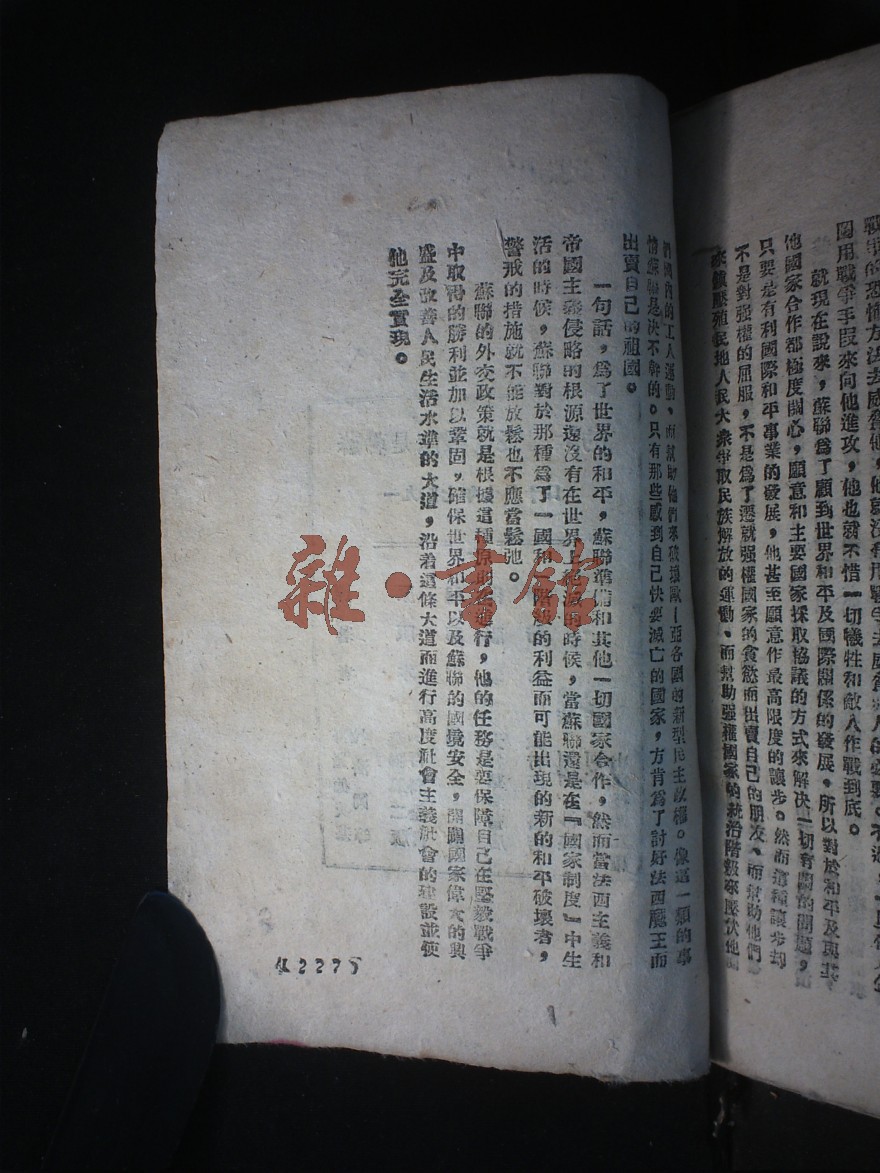 戰爭的恐怖方法去威脅他，他就沒有
圖用戰爭手段來向他進攻，他也就不惜一切犧牲和敵人作戰到底。
就現在說來，蘇聯爲了顧到世界和平及國際關係的發展，所以對於和平及與其
他國家合作都極度關心，願意和主要國家採取協議的方式來解決一切有關的問題，
只要是有利國際和平事業的發展，他甚至願意作最高限度的讓步。然而這種讓步却
不是對强權的屈服，不是爲了遷就强權國家的貪慾而出賣自己的朋友、而幫助他們
來鎮壓殖民地人民大衆爭取民族解放的運動、而幫助强權國家的統治階級來壓伏他
們國內的工人運動，而幫助他們來破壞歐—亞各國的新型民主政權。像這一類的事
情蘇聯是决不幹的。只有那些感到自己快要滅亡的國家，方肯爲了討好法西魔王而
出賣自己的祖國。
一句話，爲了世界的和平，蘇聯準備和其他一切國家合作，然而當法西主義和
帝國主義侵略的根源還沒有在世界上 的時候，當蘇聯還是在『國家制度』中生
活的時候，蘇聯對於那種爲了一國和一階級的利益而可能出現的新的和平破壞者，
警戒的措施就不能放鬆也不應當鬆弛。
蘇聯的外交政策就是根據這種原則來進行，他的任務是要保障自己在堅毅戰爭
中取得的勝利並加以鞏固，確保世界和平以及蘇聯的國境安全，開闢國家偉大的興
盛及改善人民生活水準的大道，沿着這條大道而進行高度社會主義社會的建設並使
他完全實現。
2275
雜·書館